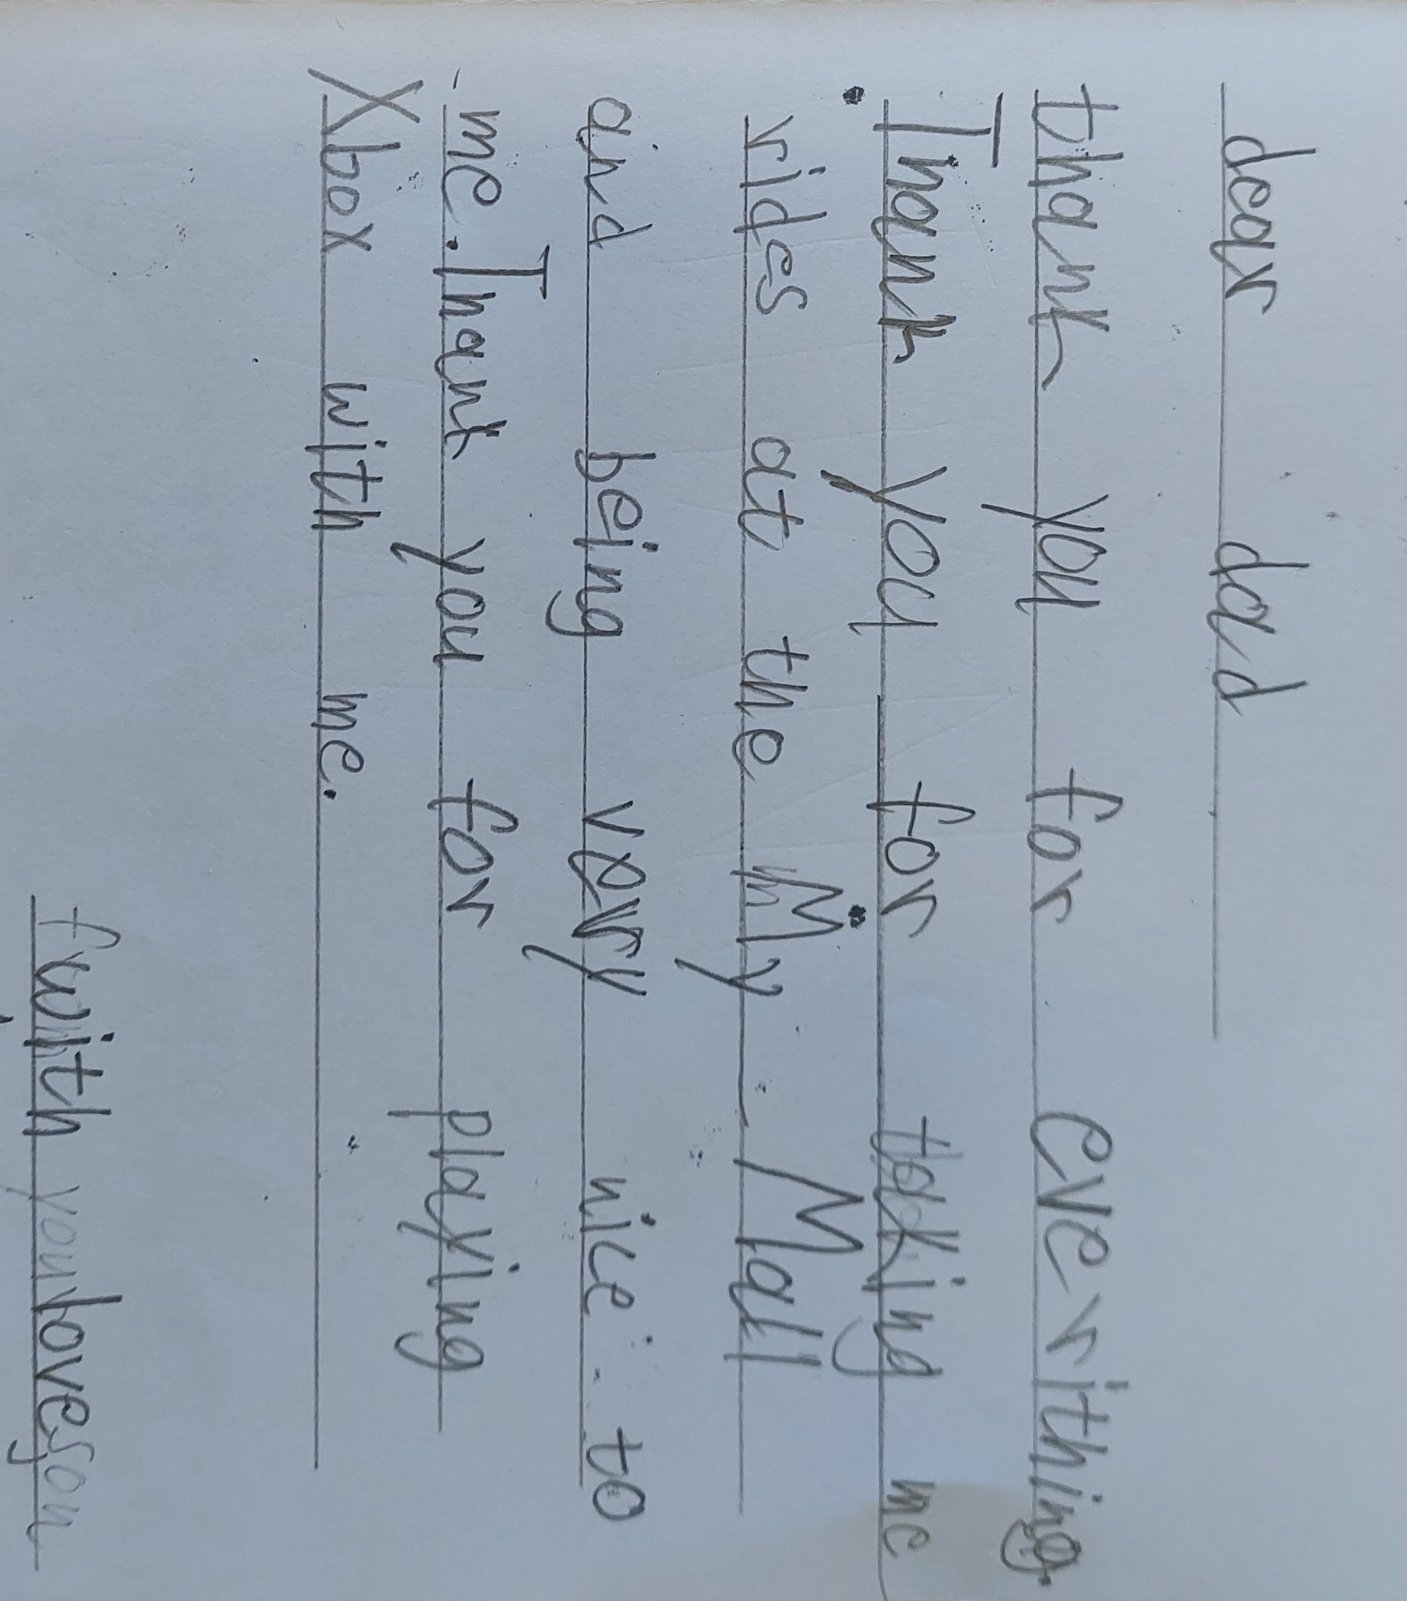 dear dad
thank you for everithing.
Thank you for taking me
rides at the My Mall
and being very nice to
me. Thank you for playing
Xbox with me.
with love